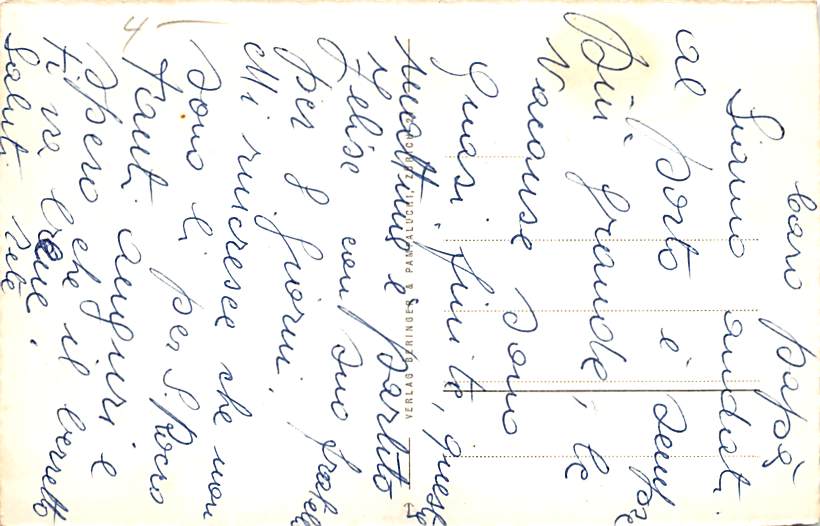 Caro papà
Siamo andati
al porto è sempre
più grande, le
vacanse sono
quasi finite, questa
mattina è partito
Felise con suo fratello
per 8 giorni.
Mi rincresce che non
sono li per S. Rocco
tanti auguri e
spero che il berretto
ti va bene.
Saluti
4
VERLAG BERINGER & PAMPALUCHI, ZÜRICH